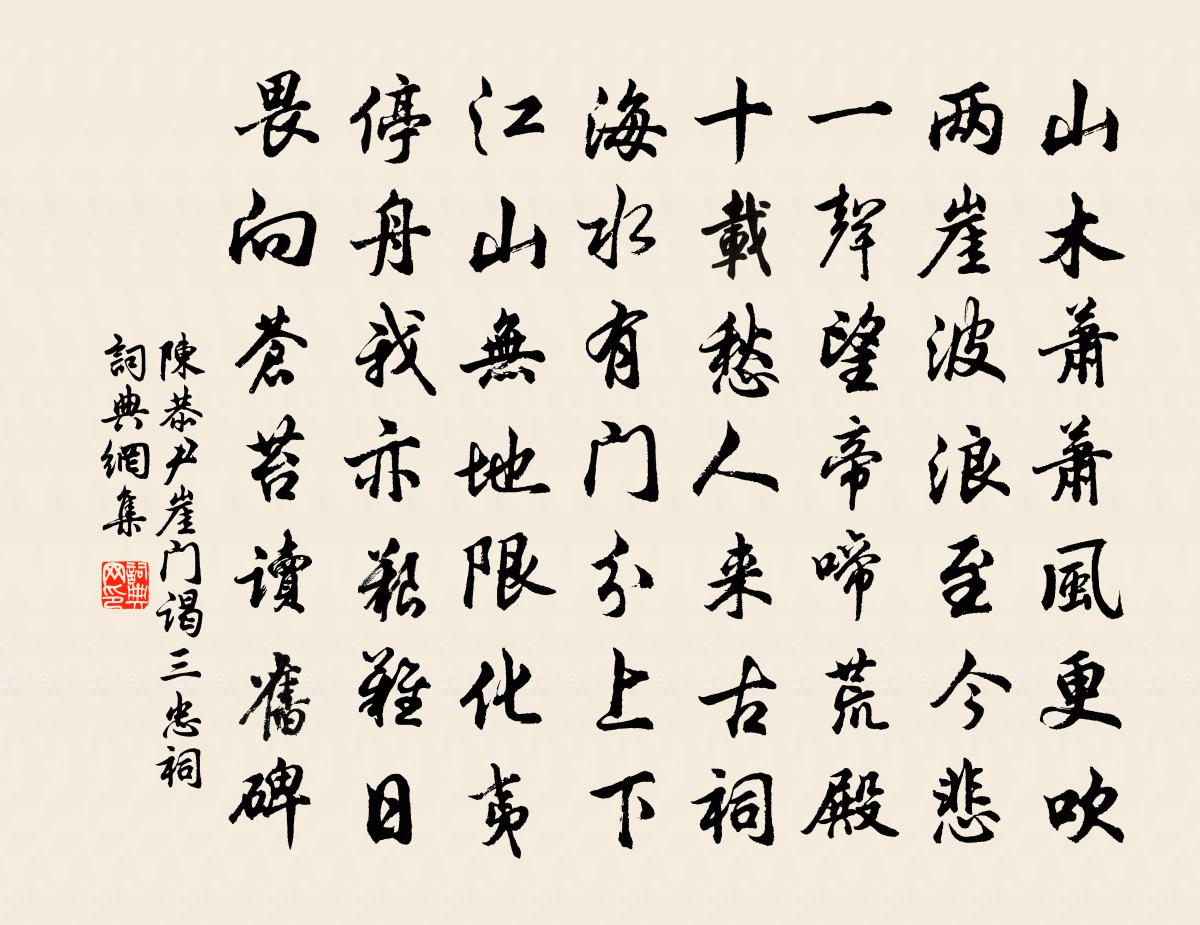 山木蕭蕭風更吹
两崖波浪至今悲
一聲望帝啼荒殿
十載愁人来古祠
海水有门分上下
江山無地限化夷
停舟我亦艱難日
畏向蒼苔讀舊碑
陳恭尹崖门谒三忠祠
詞典網集
詞典网印